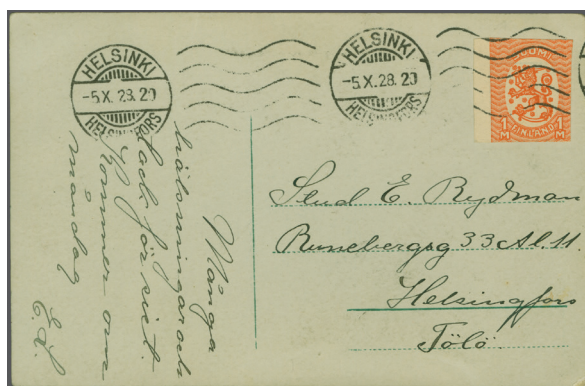 HELSINKI
-5.X.28.20
HELSINGFORS
HELSINKI
-5.X.28.20
HELSINGFORS
SUOMI
FINLAND
1 M 1 M
Många
hälsningar och
tack för sist.
Kommer om
måndag
E.L.
Stud E. Rydman
Runebergsg 33 A l. 11.
Helsingfors
Tölö.